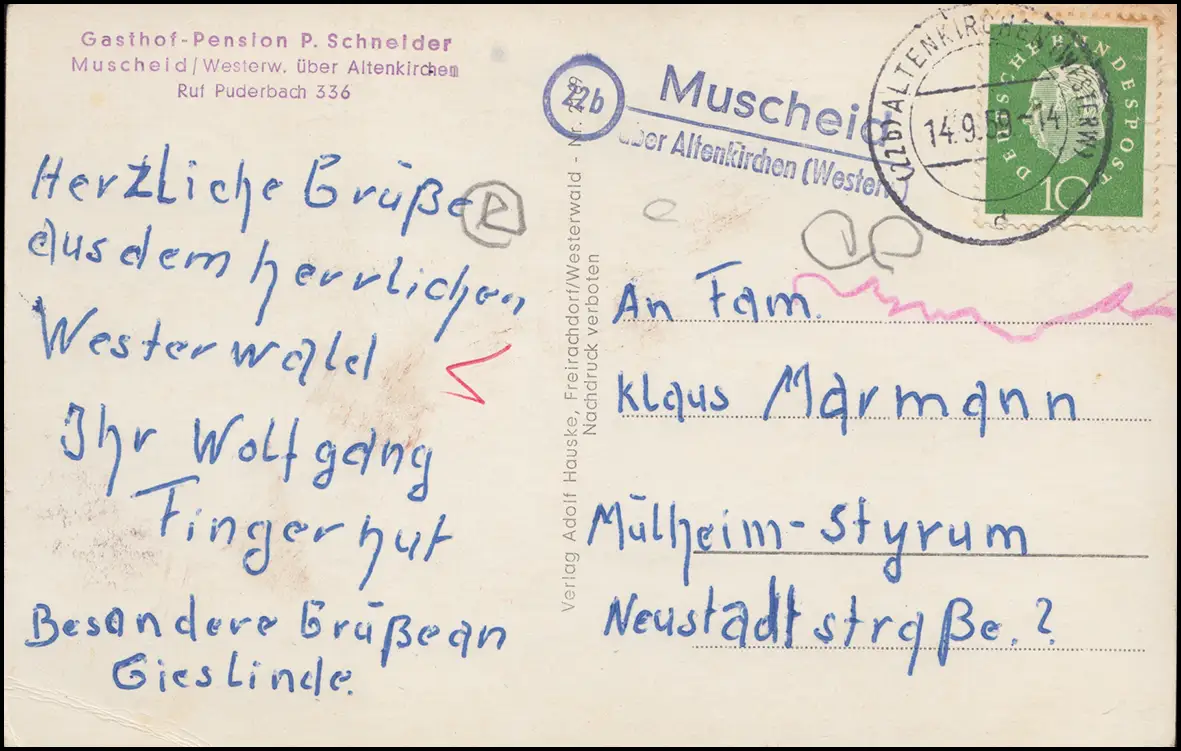 Gasthof-Pension P. Schneider
Muscheid/Westerw. über Altenkirchen
Ruf Puderbach 336
Herzliche Grüße
aus dem herrlichen
Westerwald
Ihr Wolfgang
Fingerhut
Besondere Grüße an
Gieslinde.
Verlag Adolf Hauske, Freirachdorf/Westerwald - Nr.
Nachdruck verboten
22b
Muscheid
über Altenkirchen (Westerw.)
(22b) ALTENKIRCHEN (WESTERW)
14.9.59-14
d
DEUTSCHE BUNDESPOST
10
An Fam.
Klaus Marmann
Mülheim-Styrum
Neustadtstraße.?